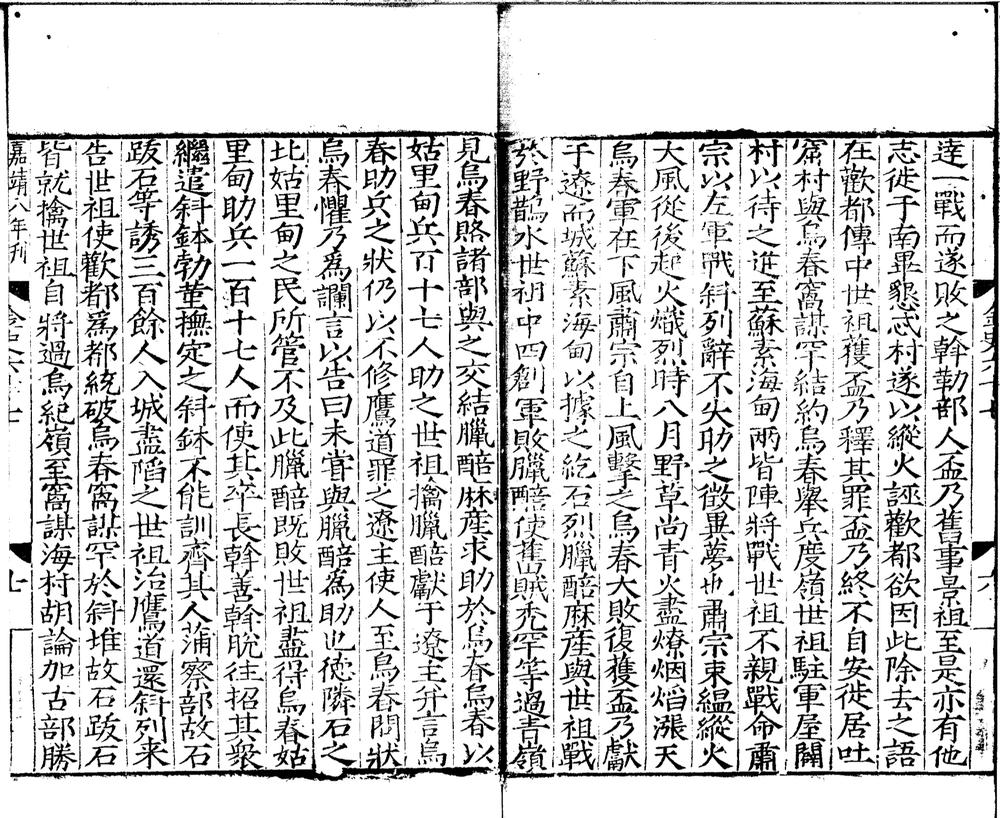 達一戰而遂敗之斡勒部人盃乃舊事景祖至是亦有他
志徙于南畢懇忒村遂以縱火誣歡都欲因此除去之語
在歡都傳中世祖獲盃乃釋其罪盃乃終不自安徙居吐
窟村與烏春窩謀罕結約烏春舉兵度嶺世祖駐軍屋闢
村以待之進至蘇素海甸兩皆陣將戰世祖不親戰命肅
宗以左軍戰斜列辭不失助之徵異夢也肅宗束緼縱火
大風從後起火熾烈時八月野草尚青火盡燎烟焰漲天
烏春軍在下風肅宗自上風擊之烏春大敗復獲盃乃獻
于遼而城蘇素海甸以據之紇石烈臘醅麻産與世祖戰
於野鵲水世祖中四創軍敗臘醅使舊賊秃罕等過青嶺
見烏春賂諸部與之交結臘醅麻産求助於烏春烏春以
姑里甸兵百十七人助之世祖擒臘醅獻于遼主并言烏
春助兵之狀仍以不修鷹道罪之遼主使人至烏春問狀
烏春懼乃爲讕言以告曰未甞與臘醅爲助也德隣石之
北姑里甸之民所管不及此臘醅既敗世祖盡得烏春姑
里甸助兵一百十七人而使其卒長斡善斡脱往招其衆
繼遣斜鉢勃堇撫定之斜鉢不能訓齊其人蒲察部故石
跋石等誘三百餘人入城盡陷之世祖治鷹道還斜列来
告世祖使歡都爲都統破烏春窩謀罕於斜堆故石跋石
皆就擒世祖自將過烏紀嶺至窩謀海村胡論加古部勝
嘉靖八年刊
七